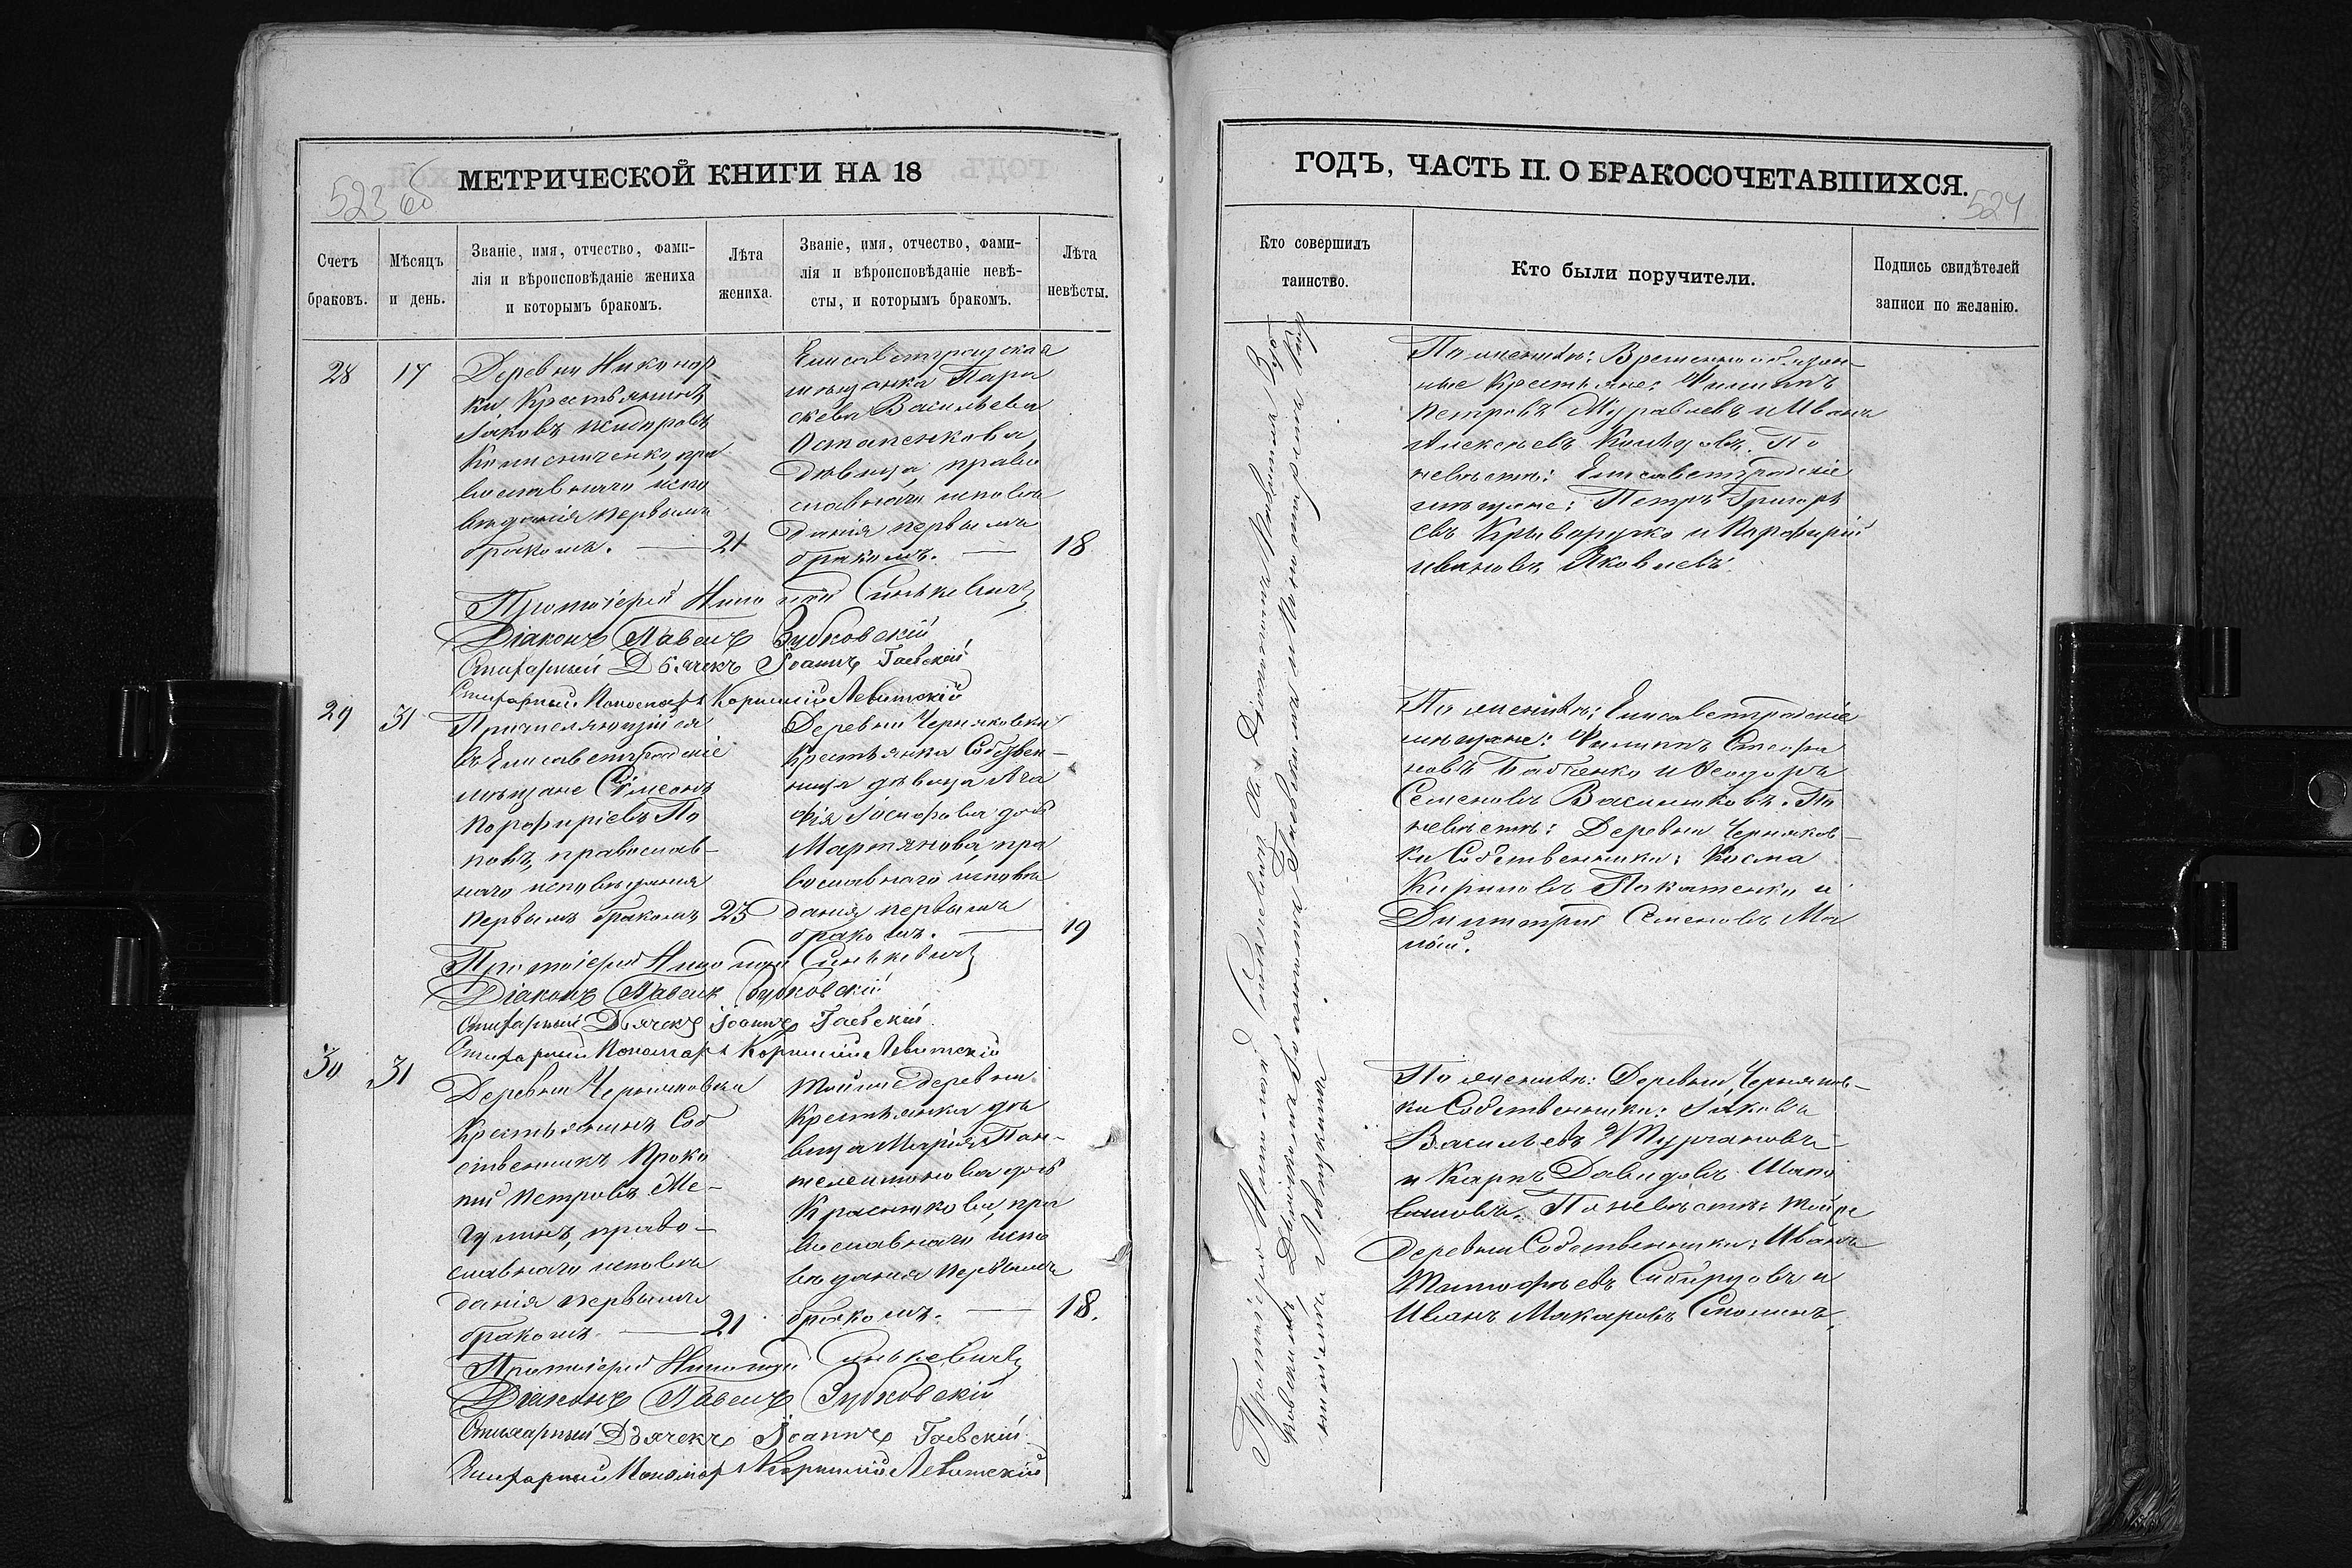 523 об
МЕТРИЧЕСКОЙ КНИГИ НА 18
Счетъ
браковъ.
Мѣсяцъ
и день.
Званіе, имя, отчество, фами-
лія и вѣроисповѣданіе жениха
и которымъ бракомъ.
Лѣта
жениха.
Званіе, имя, отчество, фами-
лія и вѣроисповѣданіе невѣ-
сты, и которымъ бракомъ.
Лѣта
невѣсты.
28
17
Деревни Никанор
ки Крестьянинъ
Іаковъ
православнаго испо
вѣданія первымъ
бракомъ. — 21
Елисаветградская
мѣщанка Пара
скева Васильева
Потапенкова,
дѣвица, право
славнаго исповѣ
данія первымъ
бракомъ. — 18
Протоіерей Ипполитъ Синькевичъ
Діаконъ Павелъ Зубковскій
Стихарный Дьячекъ Іоаннъ Гаевскій
Стихарный Пономарь Корнилій Левитскій
29
31
Причисляющійся
въ Елисаветградскіе
мѣщане Сѵмеонъ
Порфиріевъ По
повъ, православ-
наго исповѣданія
первымъ бракомъ 23
Деревни Черняховки
Крестьянка Собствен-
ница дѣвица Ага
фія Іосифова дочь
Мартянова, пра
вославнаго исповѣ
данія первымъ
бракомъ. — 19
Протоіерей Ипполитъ Синькевичъ
Діаконъ Павелъ Зубковскій
Стихарный Дьячекъ Іоаннъ Гаевскій
Стихарный Пономарь Корнилій Левитскій
30
31
Деревни Черняховки
Крестьянинъ Соб
ственникъ Проко
пій Петровъ Ме-
православнаго исповѣ
данія первымъ
бракомъ. — 21
Тойже деревни
Крестьянка дѣ
вица Марія Пан-
телеимонова дочь
Краснюкова, пра
вославнаго испо
вѣданія первымъ
бракомъ. — 18.
Протоіерей Ипполитъ Синькевичъ
Діаконъ Павелъ Зубковскій
Стихарный Дьячекъ Іоаннъ Гаевскій
Стихарный Пономарь Корнилій Левитскій
ГОДЪ, ЧАСТЬ II. О БРАКОСОЧЕТАВШИХСЯ.
524
Кто совершилъ
таинство.
Кто были поручители.
Подпись свидѣтелей
записи по желанію.
Протоіерей Ипполитъ Синькевичъ съ Діакономъ Павломъ Зуб-
ковскимъ, Дьячкомъ Іоанномъ Гаевскимъ и Пономаремъ Кор
ниліемъ Левитскимъ.
По женихѣ: Временнообязан-
ные Крестьяне: Филиппъ
Петровъ Журавлевъ и Иванъ
Алексѣевъ По
невѣстѣ: Елисаветградскіе
мѣщане: Петръ Григорь
евъ Криворучко и Порфирій
Ивановъ Яковлевъ.
По женихѣ: Елисаветградскіе
мѣщане: Филиппъ Стефа
новъ Бабенко и Ѳеодоръ
Семеновъ Василюковъ. По
невѣстѣ: Деревни Черняхов-
ки Собственники: Косма
Кириловъ и
Димитрій Семеновъ Ма
лый.
По женихѣ: Деревни Чернянов-
ки Собственники: Іаковъ
Васильевъ
и Карпъ Давидовъ Шапо
валовъ. По невѣстѣ: тойже
деревни Собственники: Иванъ
Тимофѣевъ Сибирцовъ и
Иванъ Макаровъ